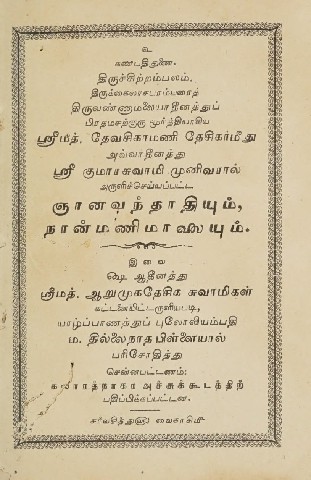 உ
கணபதிதுணை.
திருச்சிற்றம்பலம்.
திருக்கைலாசபரம்பரைத்
திருவண்ணாமலையாதீனத்துப்
பிரதமசற்குரு மூர்த்தியாகிய
ஸ்ரீமத். தேவசிகாமணி தேசிகர்மீது
அவ்வாதீனத்து
ஸ்ரீ குமாரசுவாமி முனிவரால்
அருளிச்செய்யப்பட்ட
ஞானவந்தாதியும்,
நான்மணிமாலையும்.
இவை
ஷை ஆதீனத்து
ஸ்ரீமத். ஆறுமுகதேசிக சுவாமிகள்
கட்டளையிட்டருளியபடி,
யாழ்ப்பாணத்துப் புலோலியம்பதி
ம. தில்லைநாதபிள்ளையால்
பரிசோதித்து
சென்னபட்டணம்:
அச்சுக்கூடத்திற்
பதிப்பிக்கப்பட்டன.
வைகாசிமீ